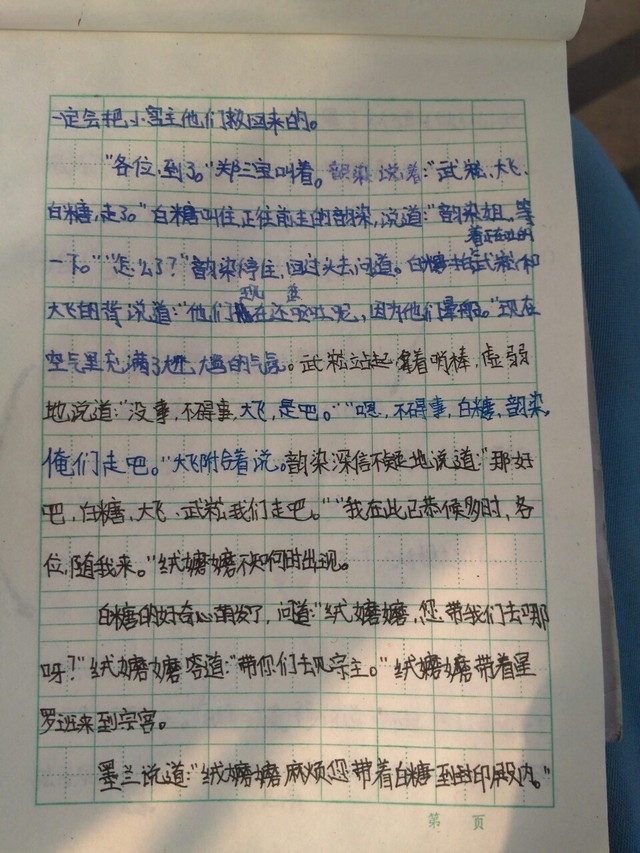 一定会把小宗主他们救回来的。
"各位,到了。"郑三宝叫着。韵染说着:"武崧、大飞、
白糖,走了。"白糖叫住正往前走的韵染,说道:"韵染姐,等
一下。""怎么了?"韵染停住,回过头去问道。白糖拍着正在吐的武崧和
大飞的背说道:"他们现在还呕吐呢,因为他们晕船。"现在
空气里充满了尴尬的气氛。武崧站起拿着哨棒,虚弱
地说道:"没事,不碍事,大飞,是吧。""嗯,不碍事,白糖,韵染,
俺们走吧。"大飞附合着说。韵染深信不疑地说道:"那好
吧,白糖、大飞、武崧我们走吧。""我在此已恭候多时,各
位,随我来。"绒嬷嬷不知何时出现。
白糖的好奇心萌发了,问道:"绒嬷嬷,您带我们去哪
呀?"绒嬷嬷答道:"带你们去见宗主。"绒嬷嬷带着星
罗班来到宗宫。
墨兰说道:"绒嬷嬷麻烦您带着白糖到封印殿内。"
第 页